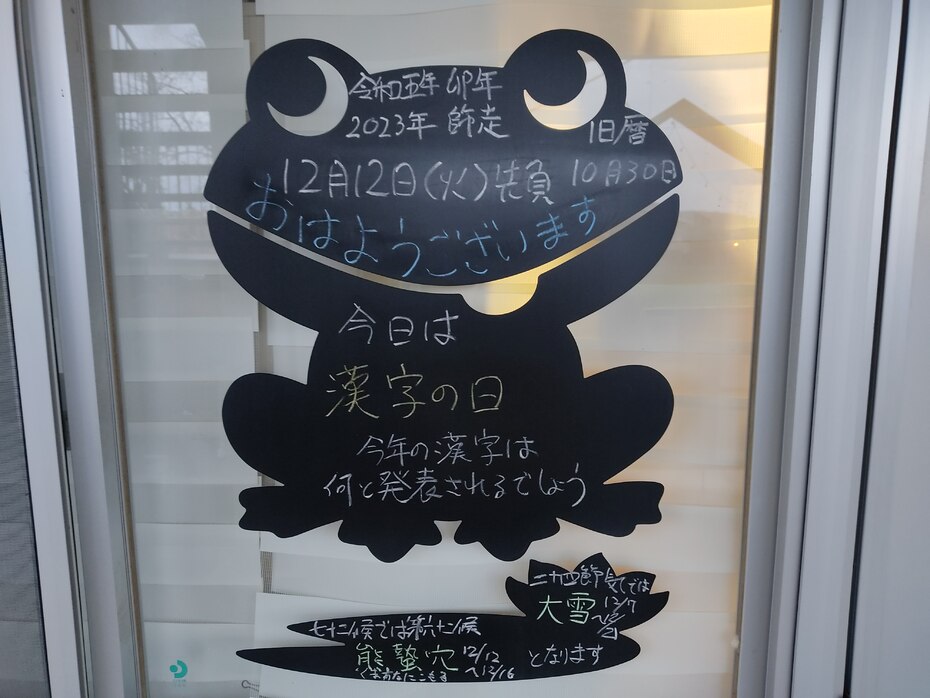 令和五年 卯年
2023年 師走
旧暦
12月12日(火)先負 10月30日
おはようございます
今日は
漢字の日
今年の漢字は
何と発表されるでしょう
二十四節気では
大雪 12/7
七十二候では第六十二候
熊蟄穴 12/12
くまあなにこもる ~12/16
となります